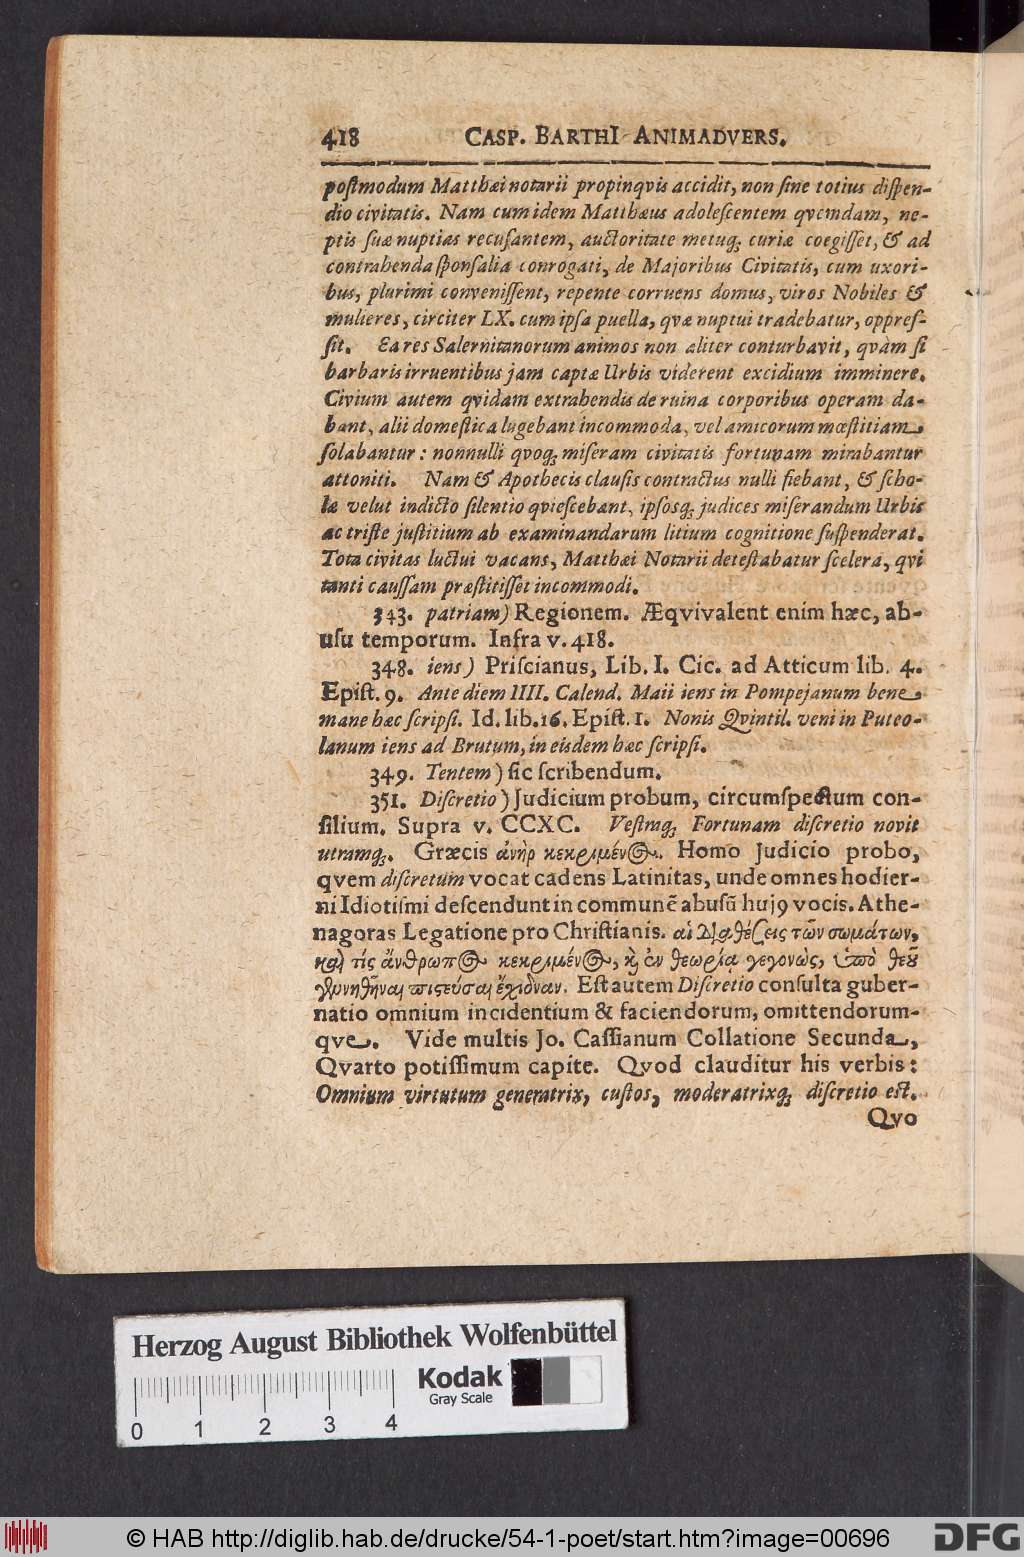 418 CASP. BARTHI ANIMADVERS.
postmodum Matthæi notarii propinqvis accidit, non sine totius dispen-
dio civitatis. Nam cum idem Matthæus adolescentem qvemdam, ne-
ptis suæ nuptias recusantem, auctoritate metuq; curiæ coegisset, & ad
contrahenda sponsalia conrogati, de Majoribus Civitatis, cum uxori-
bus, plurimi convenissent, repente corruens domus, viros Nobiles &
mulieres, circiter LX. cum ipsa puella, qvæ nuptui tradebatur, oppres-
sit. Ea res Salernitanorum animos non aliter conturbavit, qvàm si
barbaris irruentibus jam captæ Urbis viderent excidium imminere.
Civium autem qvidam extrahendis de ruina corporibus operam da-
bant, alii domestica lugebant incommoda, vel amicorum mœstitiam
solabantur: nonnulli qvoq; miseram civitatis fortunam mirabantur
attoniti. Nam & Apothecis clausis contractus nulli fiebant, & scho-
læ velut indicto silentio qviescebant, ipsosq; judices miserandum Urbis
ac triste justitium ab examinandarum litium cognitione suspenderat.
Tota civitas luctui vacans, Matthæi Notarii detestabatur scelera, qvi
tanti caussam præstitisset incommodi.
343. patriam) Regionem. Æqvivalent enim hæc, ab-
usu temporum. Infra v. 418.
348. iens) Priscianus, Lib. I. Cic. ad Atticum lib. 4.
Epist. 9. Ante diem IIII. Calend. Maii iens in Pompejanum bene
mane hæc scripsi. Id. lib. 16. Epist. 1. Nonis Qvintil. veni in Puteo-
lanum iens ad Brutum, in eisdem hæc scripsi.
349. Tentem) sic scribendum.
351. Discretio) Judicium probum, circumspectum con-
silium. Supra v. CCXC. Vestraq; Fortunam discretio novit
utramq;. Græcis ἀνὴρ κεκριμέν. Homo Judicio probo,
qvem discretum vocat cadens Latinitas, unde omnes hodier-
ni Idiotismi descendunt in communẽ abusũ huj9 vocis. Athe-
nagoras Legatione pro Christianis. αἱ Διαθέσεις τῶν σωμάτων,
καὶ τίς ἄνθρωπος κεκριμένος, κὶ ἐν θεωρίᾳ γεγονὼς, ὑπὸ θεοῦ
γεννηθῆναι πιστεύσαι ἔχιδναν. Est autem Discretio consulta guber-
natio omnium incidentium & faciendorum, omittendorum-
qve. Vide multis Jo. Cassianum Collatione Secunda,
Qvarto potissimum capite. Qvod clauditur his verbis:
Omnium virtutum generatrix, custos, moderatrixq; discretio est.
Qvo
Herzog August Bibliothek Wolfenbüttel
Kodak
Gray Scale
0 1 2 3 4
© HAB http://diglib.hab.de/drucke/54-1-poet/start.htm?image=00696
DFG